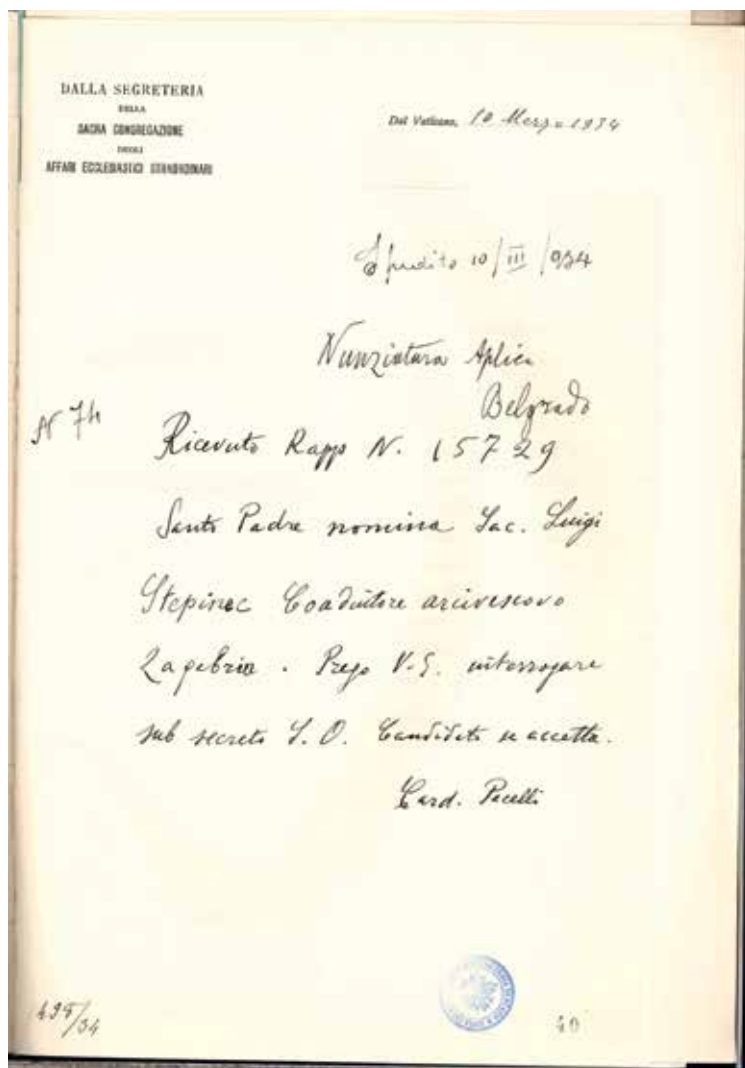 DALLA SEGRETERIA
DELLA
SACRA CONGREGAZIONE
DEGLI
AFFARI ECCLESIASTICI STRAORDINARI
Dal Vaticano, 10 Marzo 1934
Spedito 10/III/934
Nunziatura Aplica
Belgrado
N 74
Ricevuto Rapp N. 15729
Santo Padre nomina Sac. Luigi
Stepinec Coadiutore arcivescovo
Zagabria. Prego V.S. interrogare
sub secreto S.O. Candidato se accetta.
Card. Pacelli
/34
40